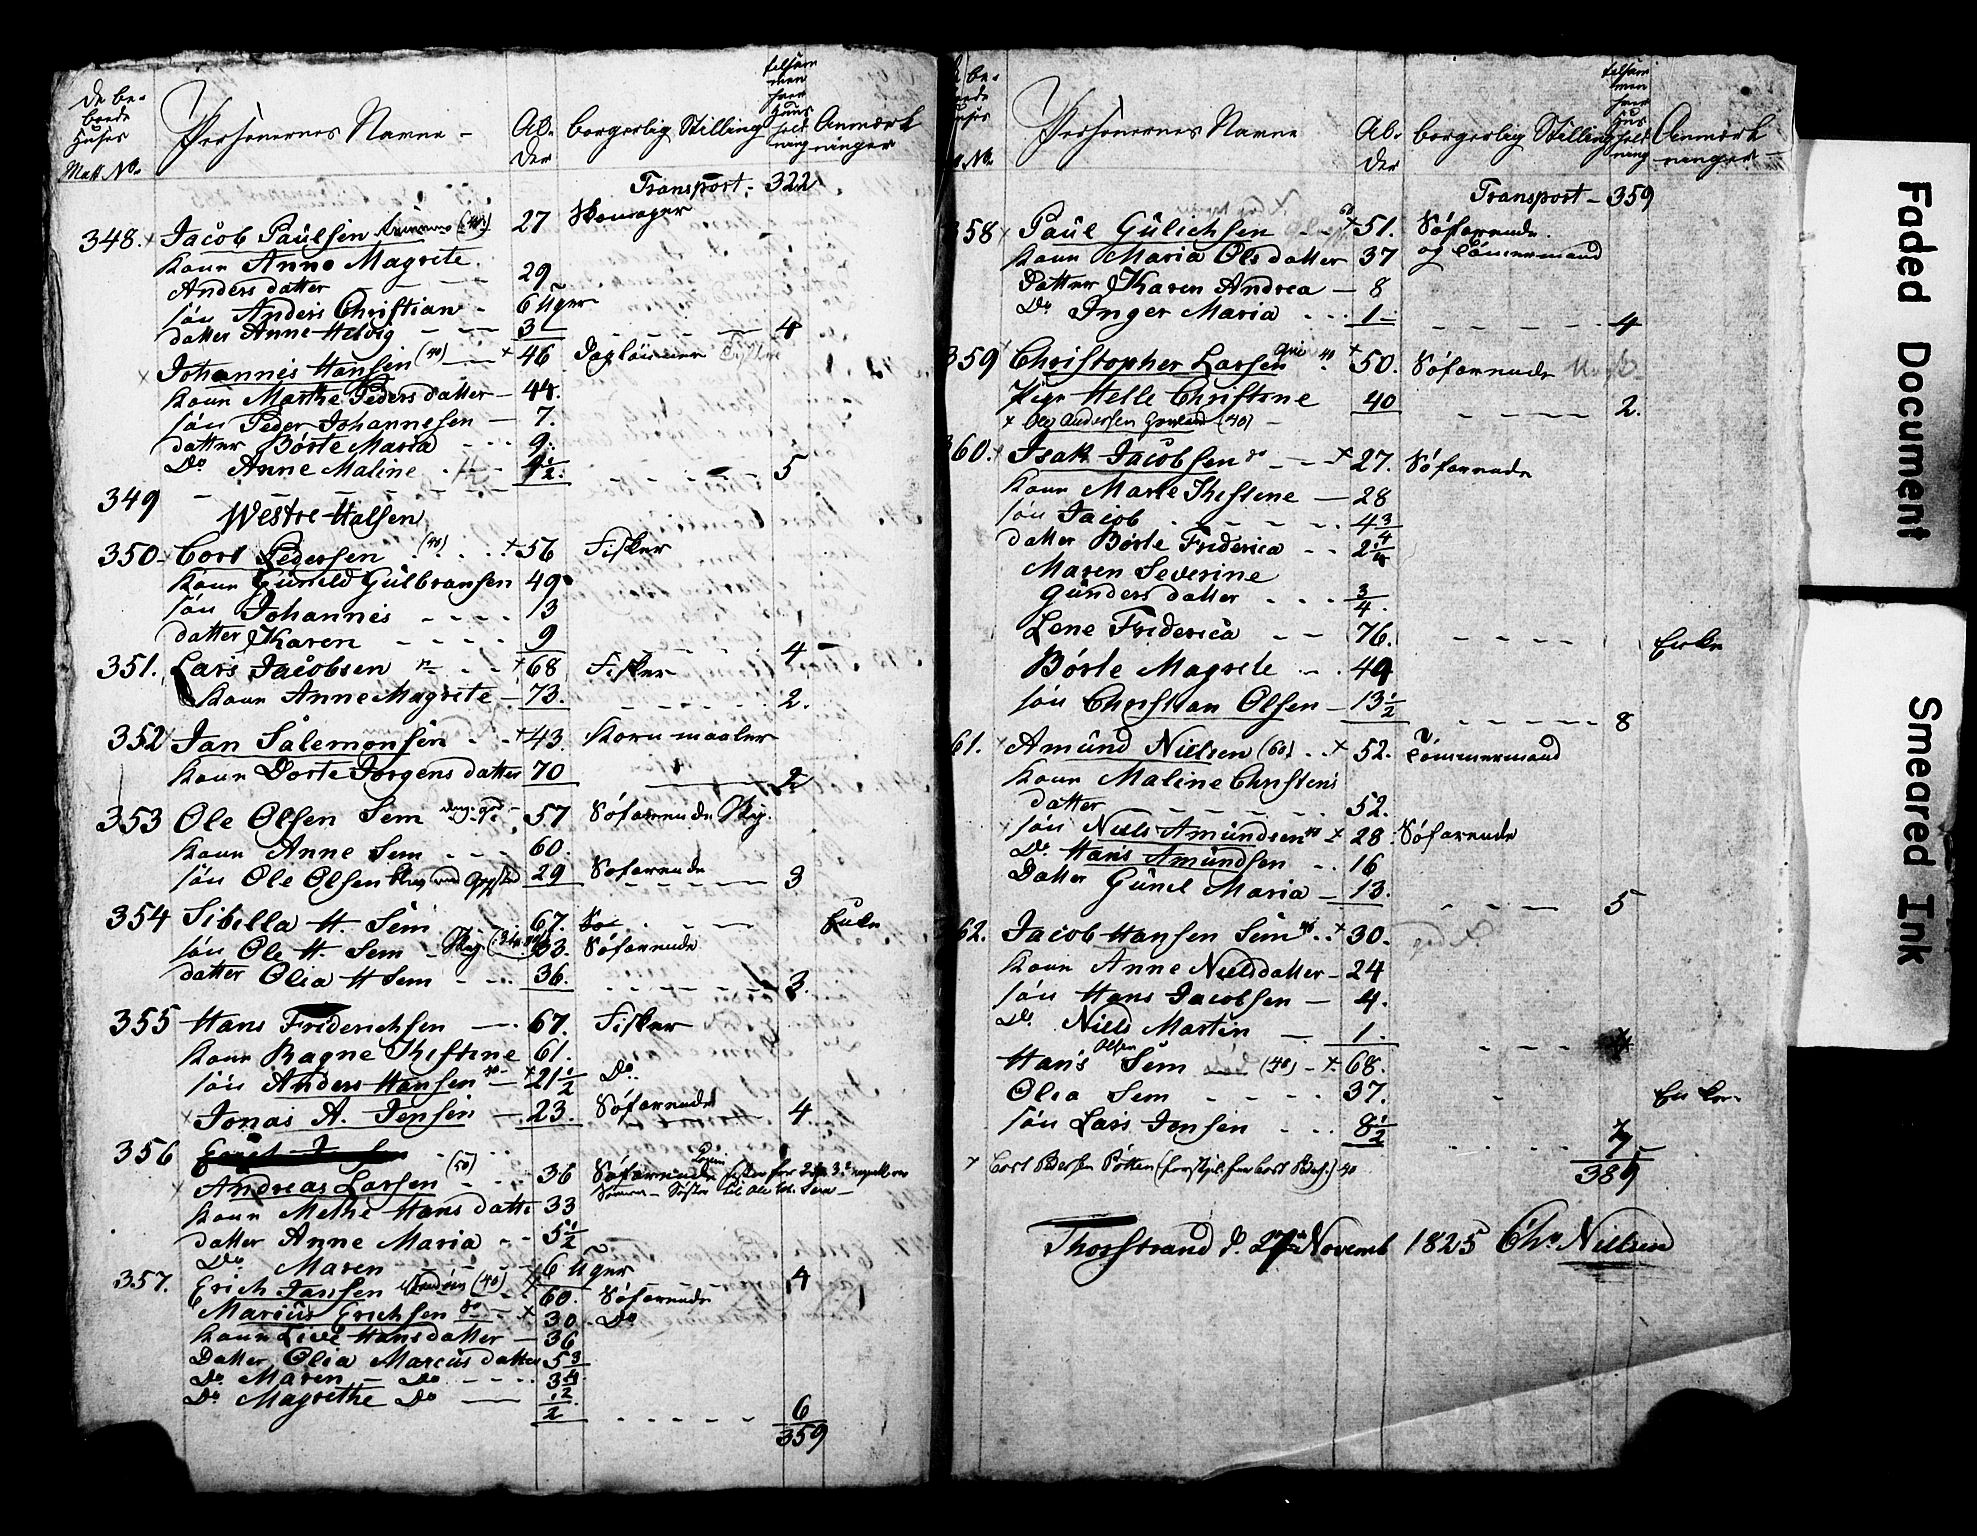 De be-
boede
Huses
Matr No.
Personernes Navne -
Al-
der
borgerlig Stilling
tilsam
men
hver
Huus
hold
ning
Anmærk
ninger
Transport - 322
348. Jacob Paulsen (40) 27 Skomager
kone Anne Magrete
Andersdatter - - - 29
søn Anders Christian - 6 Uger
datter Anne Helvig - - - 3 - - - - - 4
Johannes Hansen (40) - + 46 Dagleiner
kone Marthe Pedersdatter - 44.
søn Peder Johannesen - 7.
datter Børte Maria - - 9.
Do Anne Maline - 4½. - - - - 5
349 - - - - - - -
Westre Halsen
350 - Cort Pedersen (40) - + 56 Fisker
kone Gunild Gulbransen 49
søn Johannes - - - - 13
datter Karen - - - - 9 - - - - 4 -
351. Lars Jacobsen - + 68 Fisker
kone Anne Magrete - 73. - - - - - 2.
352 Jan Salemonsen - - + 43. Kornmaaler
kone Dorte Jorgensdatter 70 2
353 Ole Olsen Sem 57 Søfarende Skip.
kone Anne Sem - - - 60.
søn Ole Olsen 29 Søfarende - - - 3
354 Sibilla H. Sem 67. Do - - - Enke
søn Ole H. Sem - Skip 33. Søfarende
datter Olea H Sem - - - 36. - - - - - 3.
355 Hans Friderichsen - - 67. Fisker
kone Ragne Thistine 61.
søn Anders Hansen - + 21½ Do
Jonas A. Jensen - 23. Søfarende 4.
356
Andreas Larsen (50) - - - 36 Søfarende
kone Methe Hansdatter 33
datter Anne Maria - - 5½
Do Maren - - - 6 Uger 4
357. Erich Jansen (40) 60. Søfarende
Marius Erichsen - + 30 - Do
kone Live Hansdatter - 36
Datter Olia Marcusdatter 5¾
Do Maren - Do - - - - 3½
Do Magrethe Do - ½. - - - - - 6
359
Huses
No.
Personernes Navne
Al-
der
borgerlig Stilling
tilsam
men
hver
Hus
hold
ning
Anmærk
ninger -
Transport - 359
358 Paul Gulichsen - - + 51. Søfarende
kone Maria Olsdatter 37 og Tømmermand
Datter Karen Andrea - 8
Do Inger Maria - - - 1 - - - - - - 4
359 Christopher Larsen 40 + 50. Søfarende
Pige Helle Christine 40 - - - - - 2.
+ Ole Andersen (40) -
360. Isak Jacobsen - - + 27. Søfarende
kone Marte Thistene - 28
søn Jacob - - - - 4¾
datter Børte Friderica - - 2¼
Maren Severine
Gundersdatter - - - ¾.
Lene Friderica - - 76. - - - - Enke
Børte Magrete - - 49
søn Christian Olsen - 13½ - - - - - 8
61. Amund Nielsen (60) - - + 52. Tømmermand
kone Maline Christens
datter - - - - - 52.
søn Niels Amundsen 40 + 28. Søfarende
Do Hans Amundsen - - 16
Datter Gunel Maria - 13. - - - - 5
62. Jacob Hansen Sem 40 - + 30.
kone Anne Nielsdatter - 24
søn Hans Jacobsen - 4.
Do Niels Martin - 1. - - - -
Hans Olsen Sem (40) - + 68.
Olea Sem - - - - 37. Enke
søn Lars Jensen - - - 8½ - - - - 7
+ Cort Pedersen 40
389
Thorstrand d. 27 Novemb 1825 Chr Nielsen
Faded Document
Smeared Ink